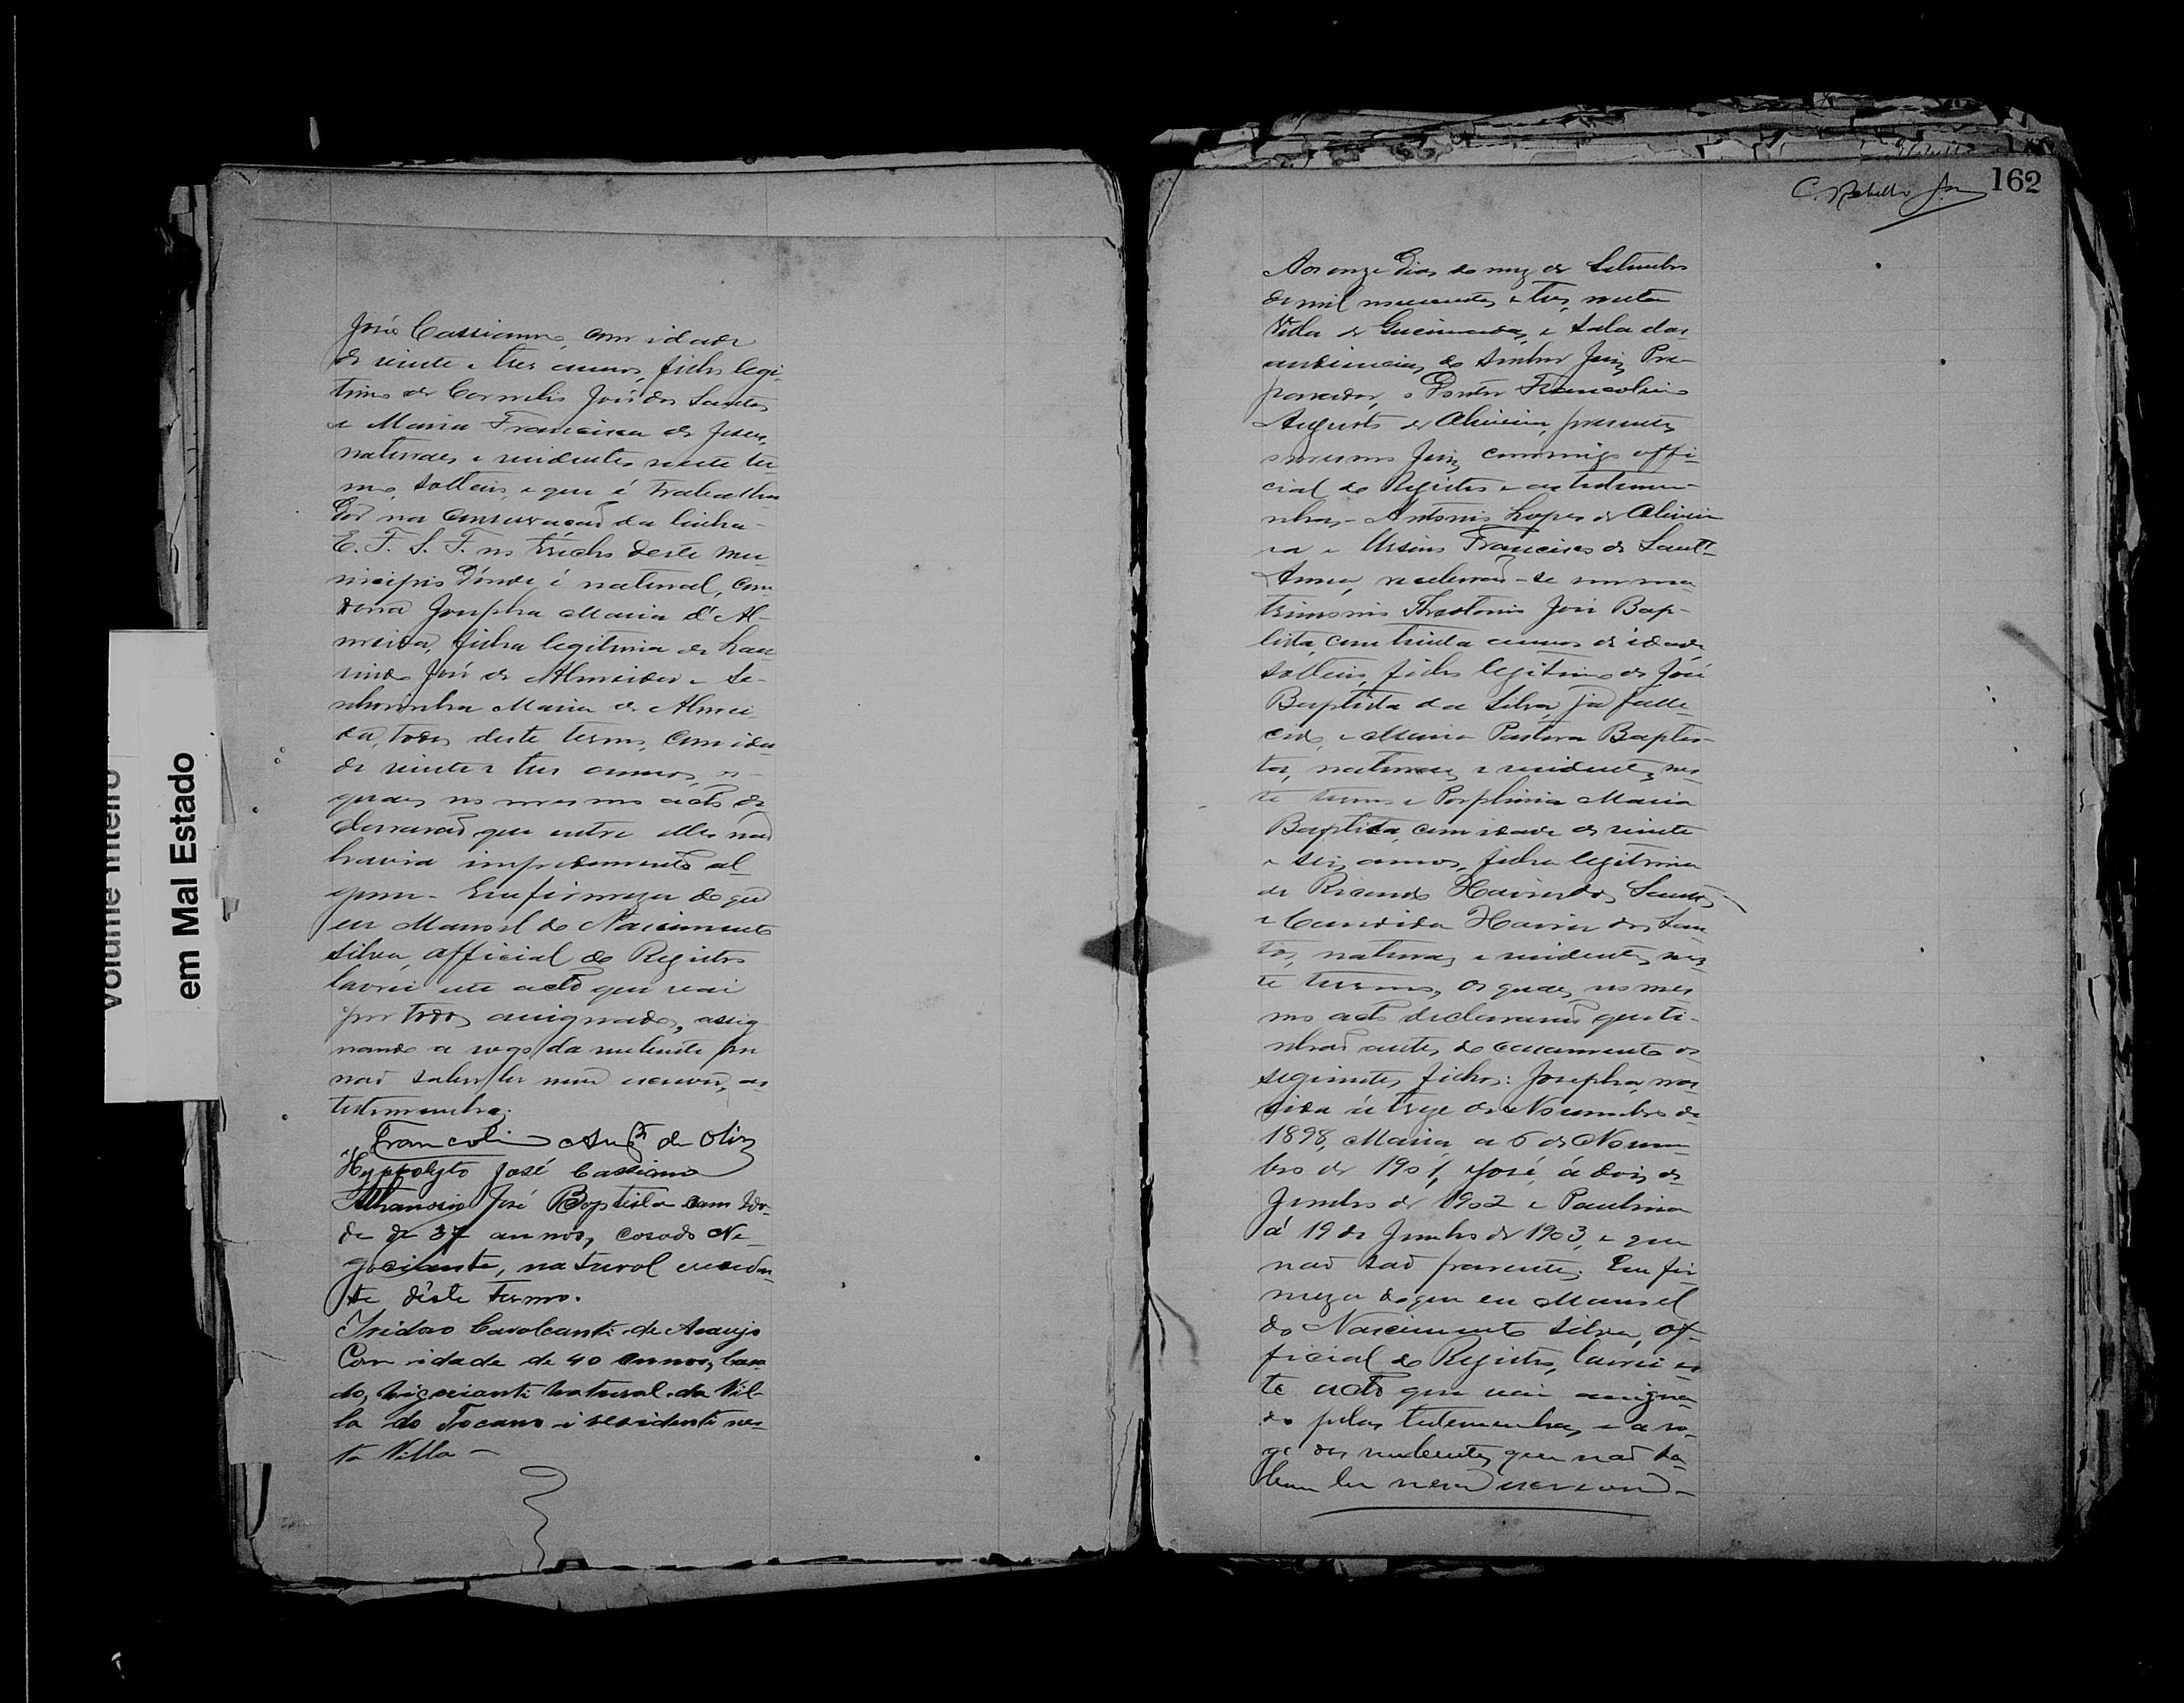 volume inteiro
em Mal Estado
José Cassiano, com idade
de vinte e tres annos, filho legi-
timo de Cornelio José dos Santos
e Maria Francisca de Jesus,
naturaes e residentes neste ter-
mo, solteiro, e que é trabalha
dor na conservação da linha
E. F. S. F. no trecho deste mu-
nicipio d'onde é natural, com
dona Josepha Maria d'Al-
meida, filha legitima de
José de Almeida e Se-
nhorinha Maria de Almei-
da, todos deste termo, com ida
de vinte e tres annos, os
quaes no mesmo acto de
clararaõ que entre elles naõ
havia impedimento al
gum. Em firmeza do que
eu Manoel do Nascimento
Silva, official do Registro
lavrei este acto que vai
por todos assignado, assig
nando a rogo da nubente por
naõ saber ler nem escrever, as
testemunhas.
Francolino Augto de Olivra
Hyppolyto José Cassiano
Athanasio José Baptista com Ida-
de de 37 annos, casado Ne-
gociante, natural e residen-
te dêste Termo.
Isidoro Cavalcanti de Araujo
Com idade de 40 annos, Casa
do, Nigociante natural da Vil-
la do Tocano i residenti nes-
ta Villa
C. Rebello Jor
162
Aos onze dias do mez de Setembro
de mil novecentos e tres, nesta
Villa de Queimadas, e sala das
audiencias do Senhor Juiz Pre-
parador, o Doutor Francolino
Augusto de Oliveira, presentes
o mesmo Juiz, commigo offi-
cial do Registro e as testemu-
nhas - Antonio Lopes de Olivei
ra e Ursino Francisco de Sant'
Anna, receberaõ-se em ma
trimonio José Bap-
tista, com trinta annos de idade,
solteiro, filho legitimo de José
Baptista da Silva, já falle-
cido, e Maria Pastora Baptis-
ta, naturaes e residentes nes-
te termo e Porphiria Maria
Baptista, com idade de vinte
e seis annos, filha legitima
de Ricardo Xavier dos Santos
e Candida Xavier dos San
tos, naturaes e residentes nes-
te termo, os quaes no mes
mo acto declararaõ que ti-
nhaõ antes do casamento os
seguintes filhos: Josepha, nas
cida á treze de Novembro de
1898, Maria, a 6 de Novem
bro de 1901, José, á dois de
Junho de 1902 e Paulina
á 19 de Junho de 1903, e que
naõ saõ parentes. Em fir
meza do que eu Manoel
do Nascimento Silva, of-
ficial do Registro, lavrei es
te acto que vai assigna-
do pelas testemunhas, e a ro-
go dos nubentes, que naõ sa-
bem ler nem escrever.